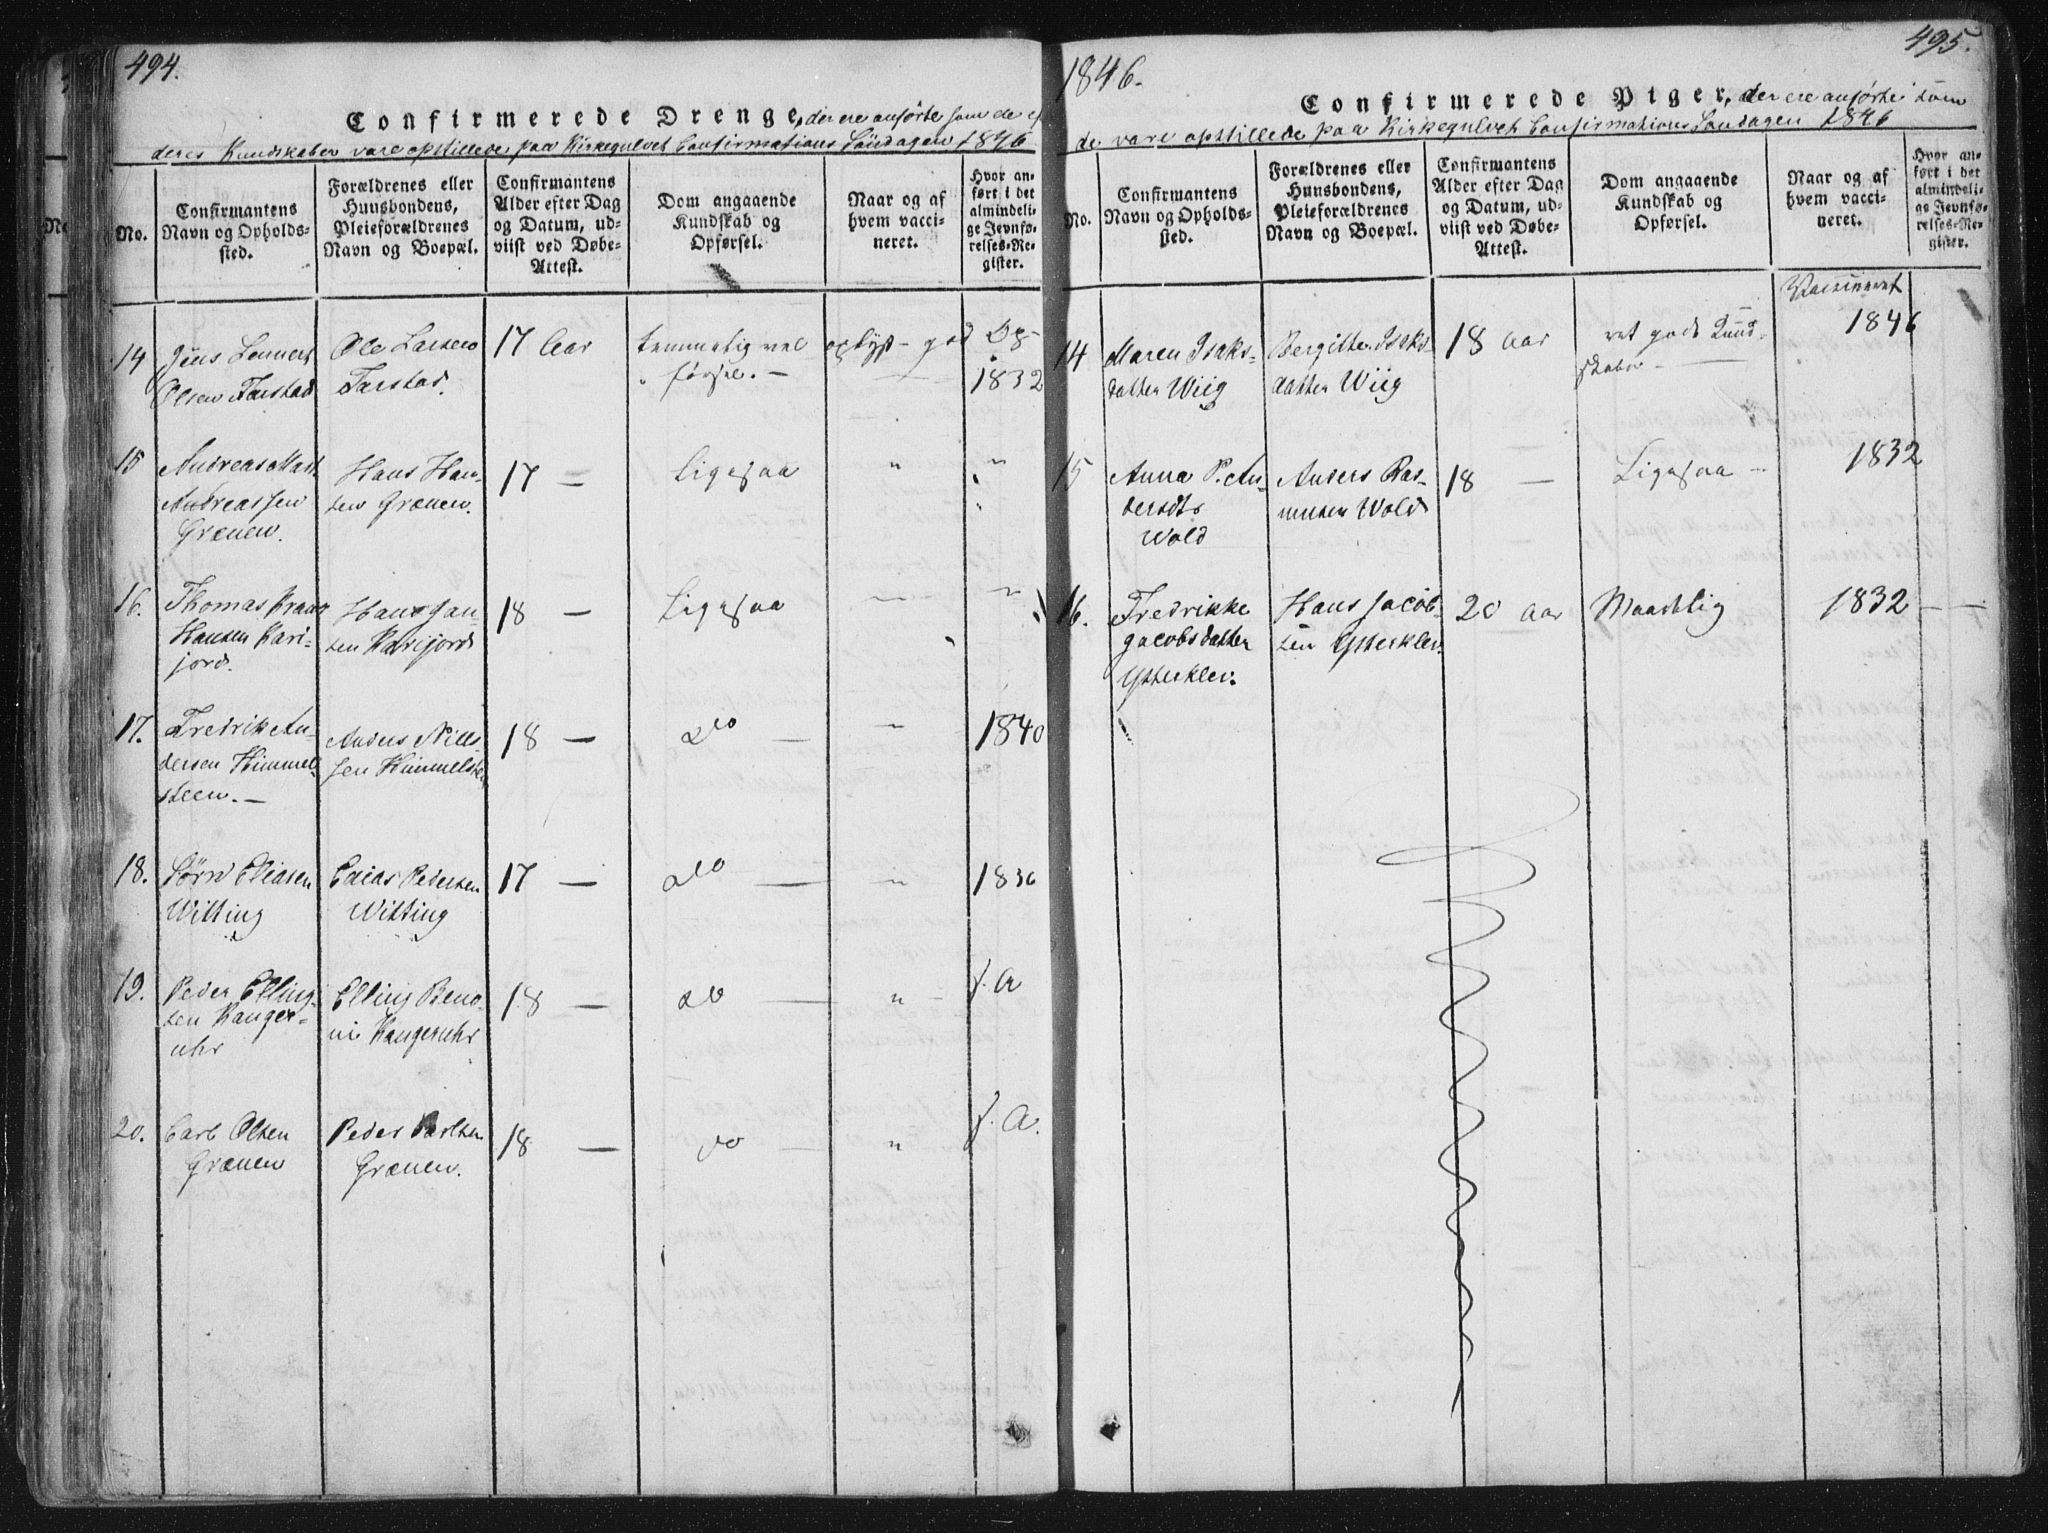 494.
Confirmerede Drenge, der ere anførte som de ef
deres Kundskaber vare opstillede paa Kirkegulvet Confirmations Søndagen 1846
No.
Confirmantens
Navn og Opholds-
sted.
Forældrenes eller
Huusbondens,
Pleieforældrenes
Navn og Boepæl.
Confirmantens
Alder efter Dag
og Datum, ud-
viist ved Døbe-
Attest.
Dom angaaende
Kundskab og
Opførsel.
Naar og af
hvem vacci-
neret.
Hvor an-
ført i det
almindeli-
ge Jevnfø-
relses-Re-
gister.
14
Jens Lennert
Olsen Farstad
Ole Larsen
Farstad.
17 Aar
temmelig vel oplyst - god
førsel. -
1832
15
Andreas Mart
Andreassen
Grænen.
Hans Han-
sen Grænen.
17 =
Ligesaa
"
"
16.
Thomas
Hansen Kari-
jord.
Hans Han-
sen Karijord
18 -
Ligesaa
"
"
17.
Fredrik An-
dersen Himmel-
steen. -
Anders Nills-
sen Himmelsteen
18 -
do -
"
1840
18.
Sørn Eliasen
Witting
Elias Pedersen
Witting
17 -
do -
"
1836
19.
Peder Elling-
sen Kanger-
uhr
Elling Beno-
ni Kangeruhr
18 -
do -
"
f. A
20.
Carl Olsen
Grænen
Peder Carlsen
Grænen.
18 -
do
"
f. A.
1846.
495.
Confirmerede Piger, der ere anførte som
de vare opstillede paa Kirkegulvet Confirmations Søndagen 1846
No.
Confirmantens
Navn og Opholds-
sted.
Forældrenes eller
Huusbondens,
Pleieforældrenes
Navn og Boepæl.
Confirmantens
Alder efter Dag
og Datum, ud-
viist ved Døbe-
Attest.
Dom angaaende
Kundskab og
Opførsel.
Naar og af
hvem vacci-
neret.
Hvor an-
ført i det
almindeli-
ge Jevnfø-
relses-Re-
gister.
Vaccineret
14
Maren Isaks-
datter Wiig
Bergitte Isaks-
datter Wiig
18 Aar
ret gode Kund-
skaber -
1846
15
Anna P. An-
dersdtr
Wold
Anders Ras-
musen Wold
18 -
Ligesaa -
1832
16.
Fredrikke
Jacobsdatter
Ytterklev.
Hans Jacob-
sen Ytterklev.
20 Aar
Maadelig
1832 - -